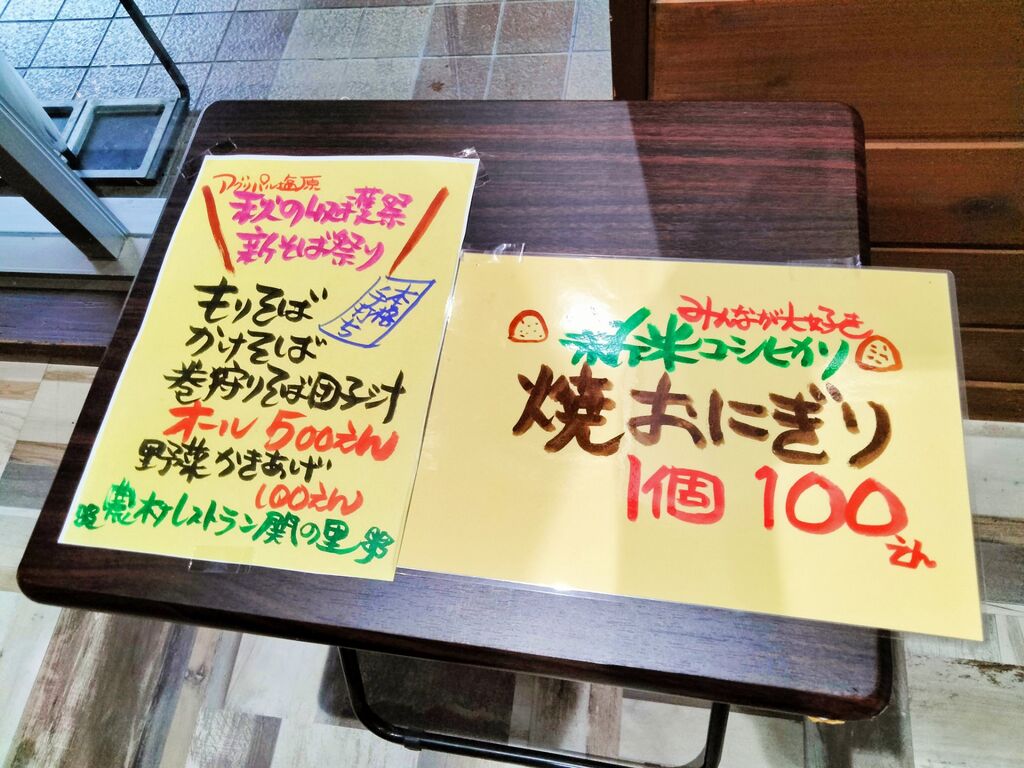 アグリパル塩原
秋の収穫祭
新そば祭り
本格
手打ち
もりそば
かけそば
巻狩りそば団子汁
オール 500えん
野菜かきあげ
100えん
農村レストラン関の里
みんなが大好き
新米コシヒカリ
焼おにぎり
1個 100えん